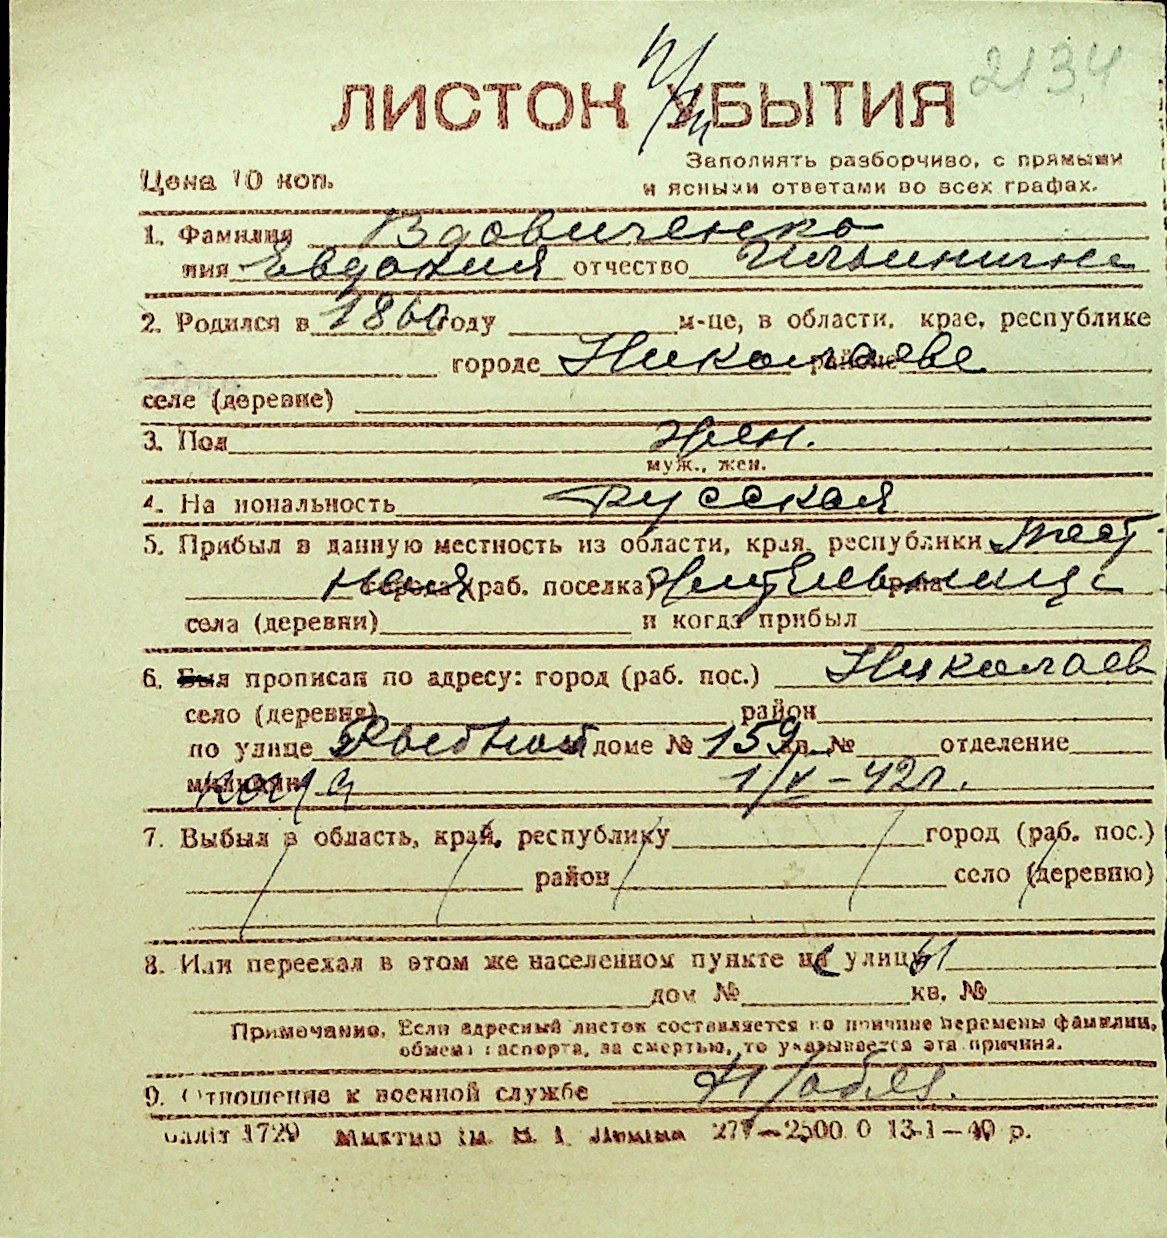 2134
ЛИСТОК УБЫТИЯ
Цена 10 коп.
Заполнять разборчиво, с прямыми
и ясными ответами во всех графах.
1. Фамилия Вдовиченко
имя Евдокия отчество Ильинична
2. Родился в 1860 году м-це, в области, крае, республике
городе Николаеве районе
селе (деревне)
3. Пол жен.
муж., жен.
4. Национальность русская
5. Прибыл в данную местность из области, края, республики мест
ная города (раб. поселка) жительница р-на
села (деревни) и когда прибыл
6. Был прописан по адресу: город (раб. пос.) Николаев
село (деревня) район
по улице доме № 159 кв. № отделение
милиции 1/V-42г.
7. Выбыл в область, край, республику город (раб. пос.)
район село (деревню)
8. Или переехал в этом же населенном пункте на улицу
дом № кв. №
Примечание. Если адресный листок составляется по причине перемены фамилии,
обмена паспорта, за смертью, то указывается эта причина.
9. Отношение к военной службе Н/обяз.
1729 277—2500 0 13-1—40 р.